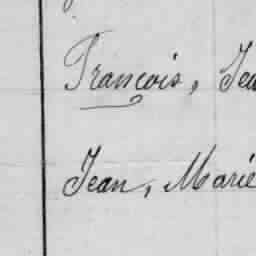 François, Jea
Jean, Marie